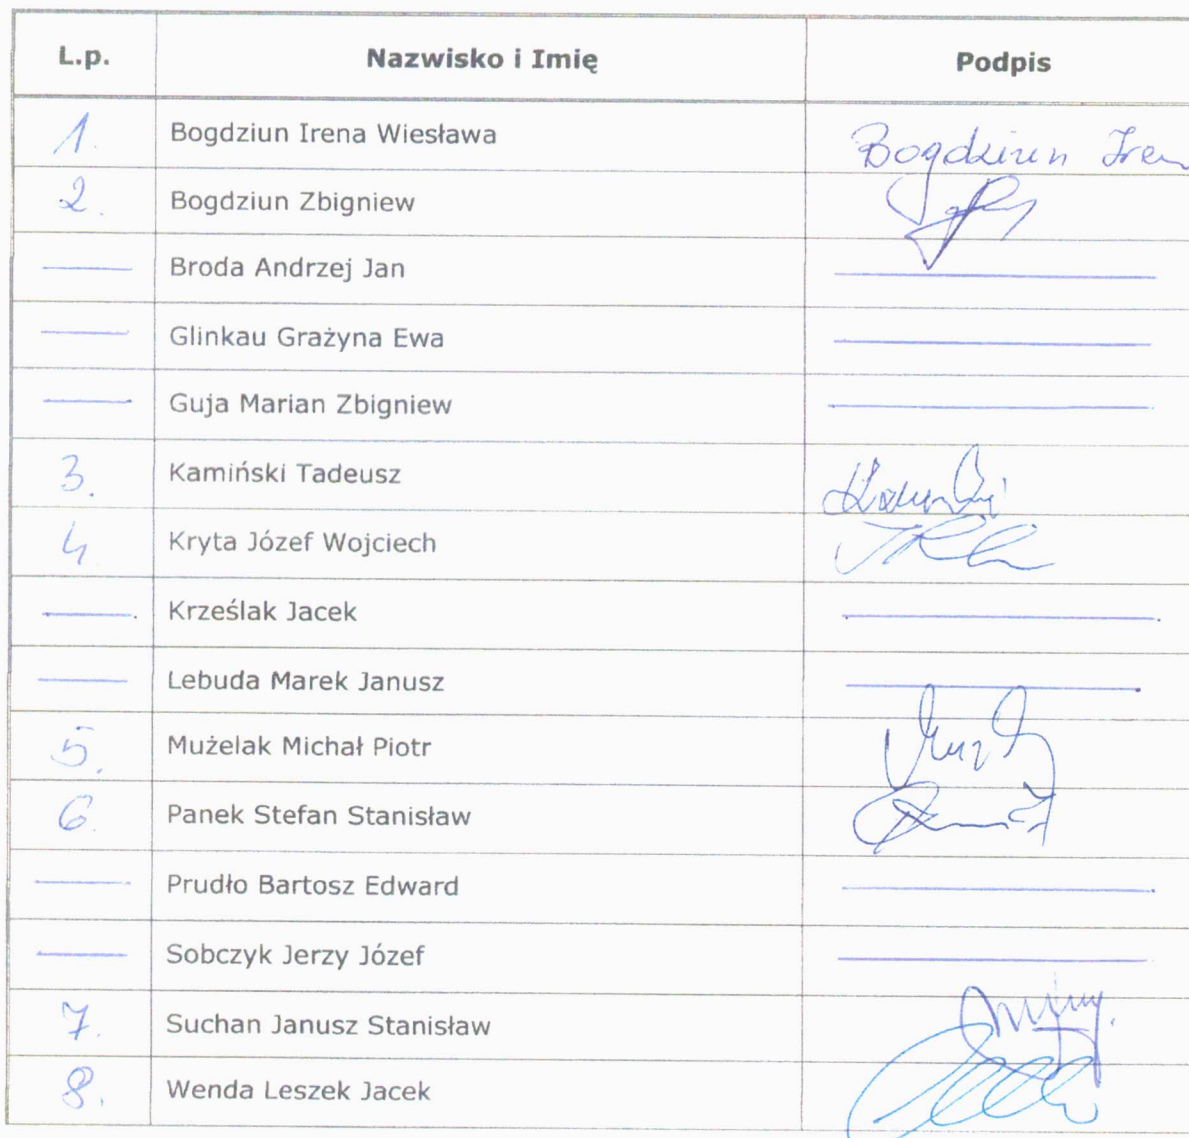 L.p. Nazwisko i Imię Podpis
1. Bogdziun Irena Wiesława Bogdziun Iren
2. Bogdziun Zbigniew
Broda Andrzej Jan
Glinkau Grażyna Ewa
Guja Marian Zbigniew
3. Kamiński Tadeusz
4 Kryta Józef Wojciech
Krześlak Jacek
Lebuda Marek Janusz
5. Mużelak Michał Piotr
6. Panek Stefan Stanisław
Prudło Bartosz Edward
Sobczyk Jerzy Józef
7. Suchan Janusz Stanisław
8. Wenda Leszek Jacek